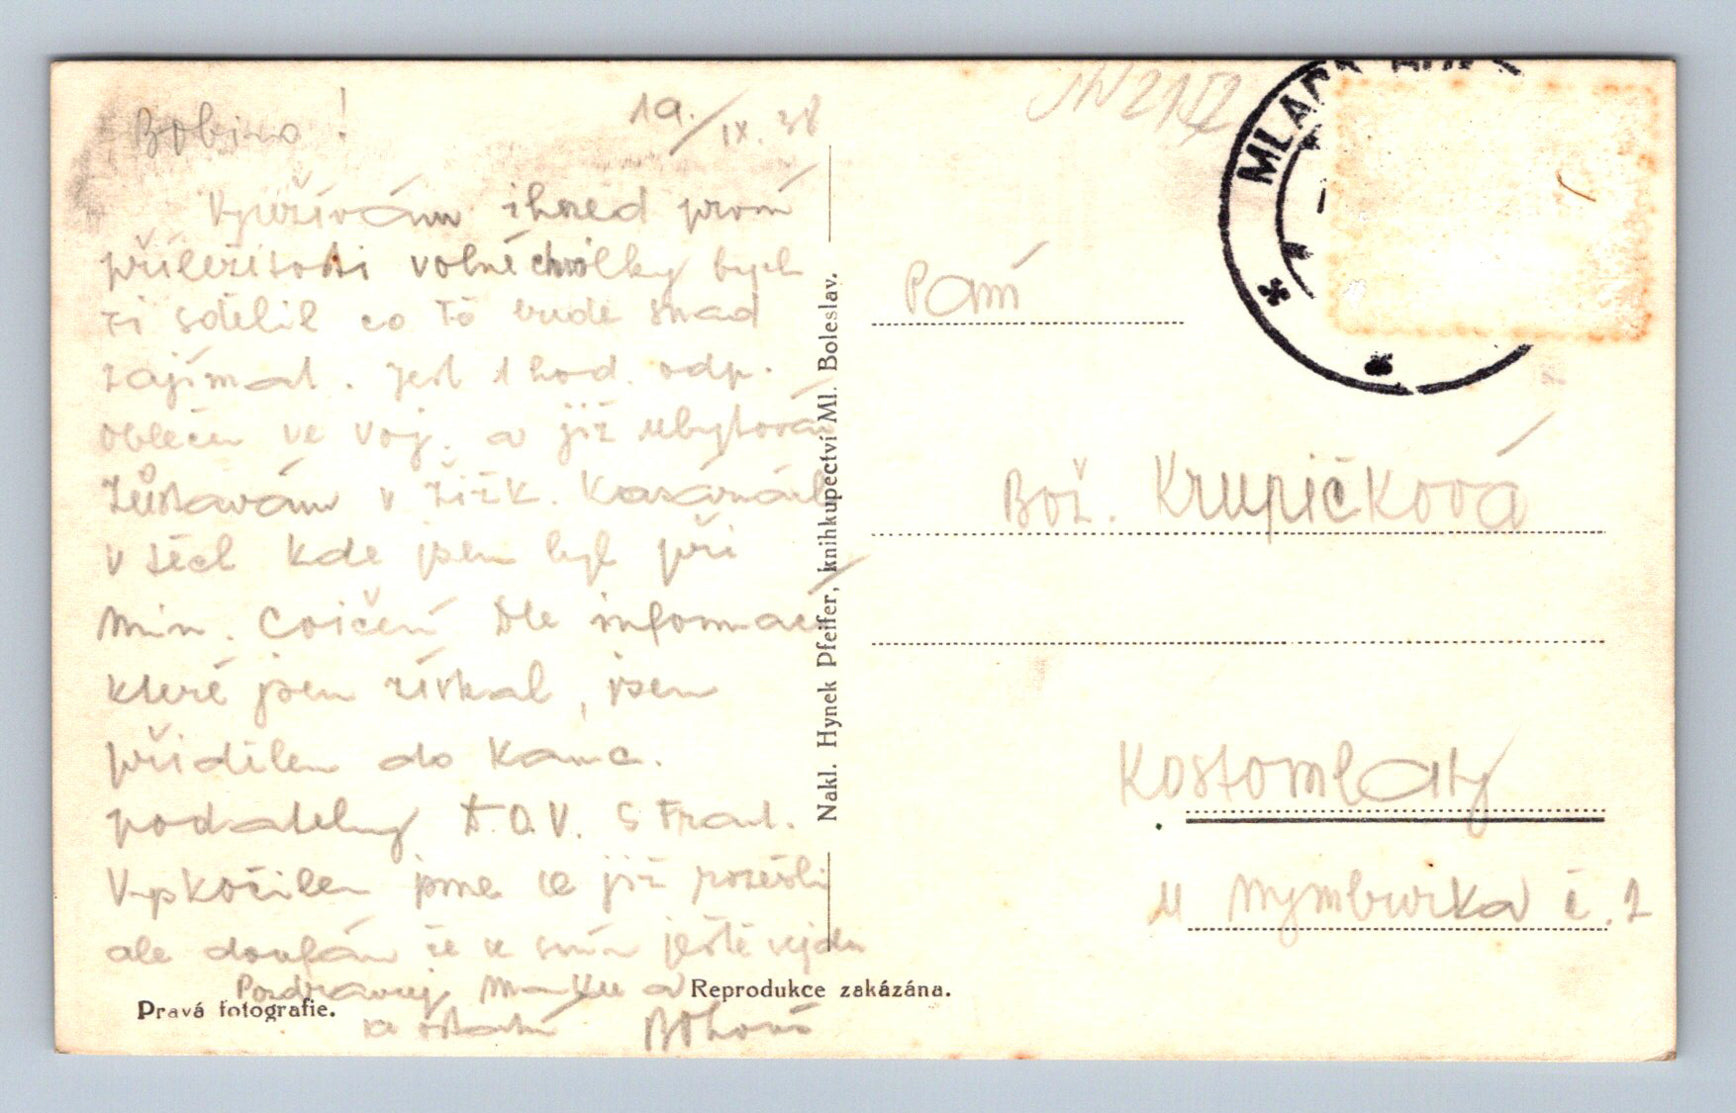 Bobino !
19./IX. 38
Využívám ihned první
příležitosti volné chvilky bych
ti sdělil co Tě bude snad
zajímat. Jest 1 hod. odp.
oblečen ve voj. a již ubytován
Zůstavám v Žižk. Kasárnách
v těch kde jsem byl při
min. Cvičení Dle informací
které jsem získal, jsem
přidělen do Kanc.
podatelny D.O.V. S Frant.
Vyskočilem jsme se již rozešli
ale doufám že se sním ještě sejdu
Pozdravuj Mařku a
ostatní Bohouš
Pravá fotografie.
Reprodukce zakázána.
Nakl. Hynek Pfeifer, knihkupectví Ml. Boleslav.
MLADÁ
Paní
Bož. Krupičková
Kostomlaty
u Nymburka č. 2